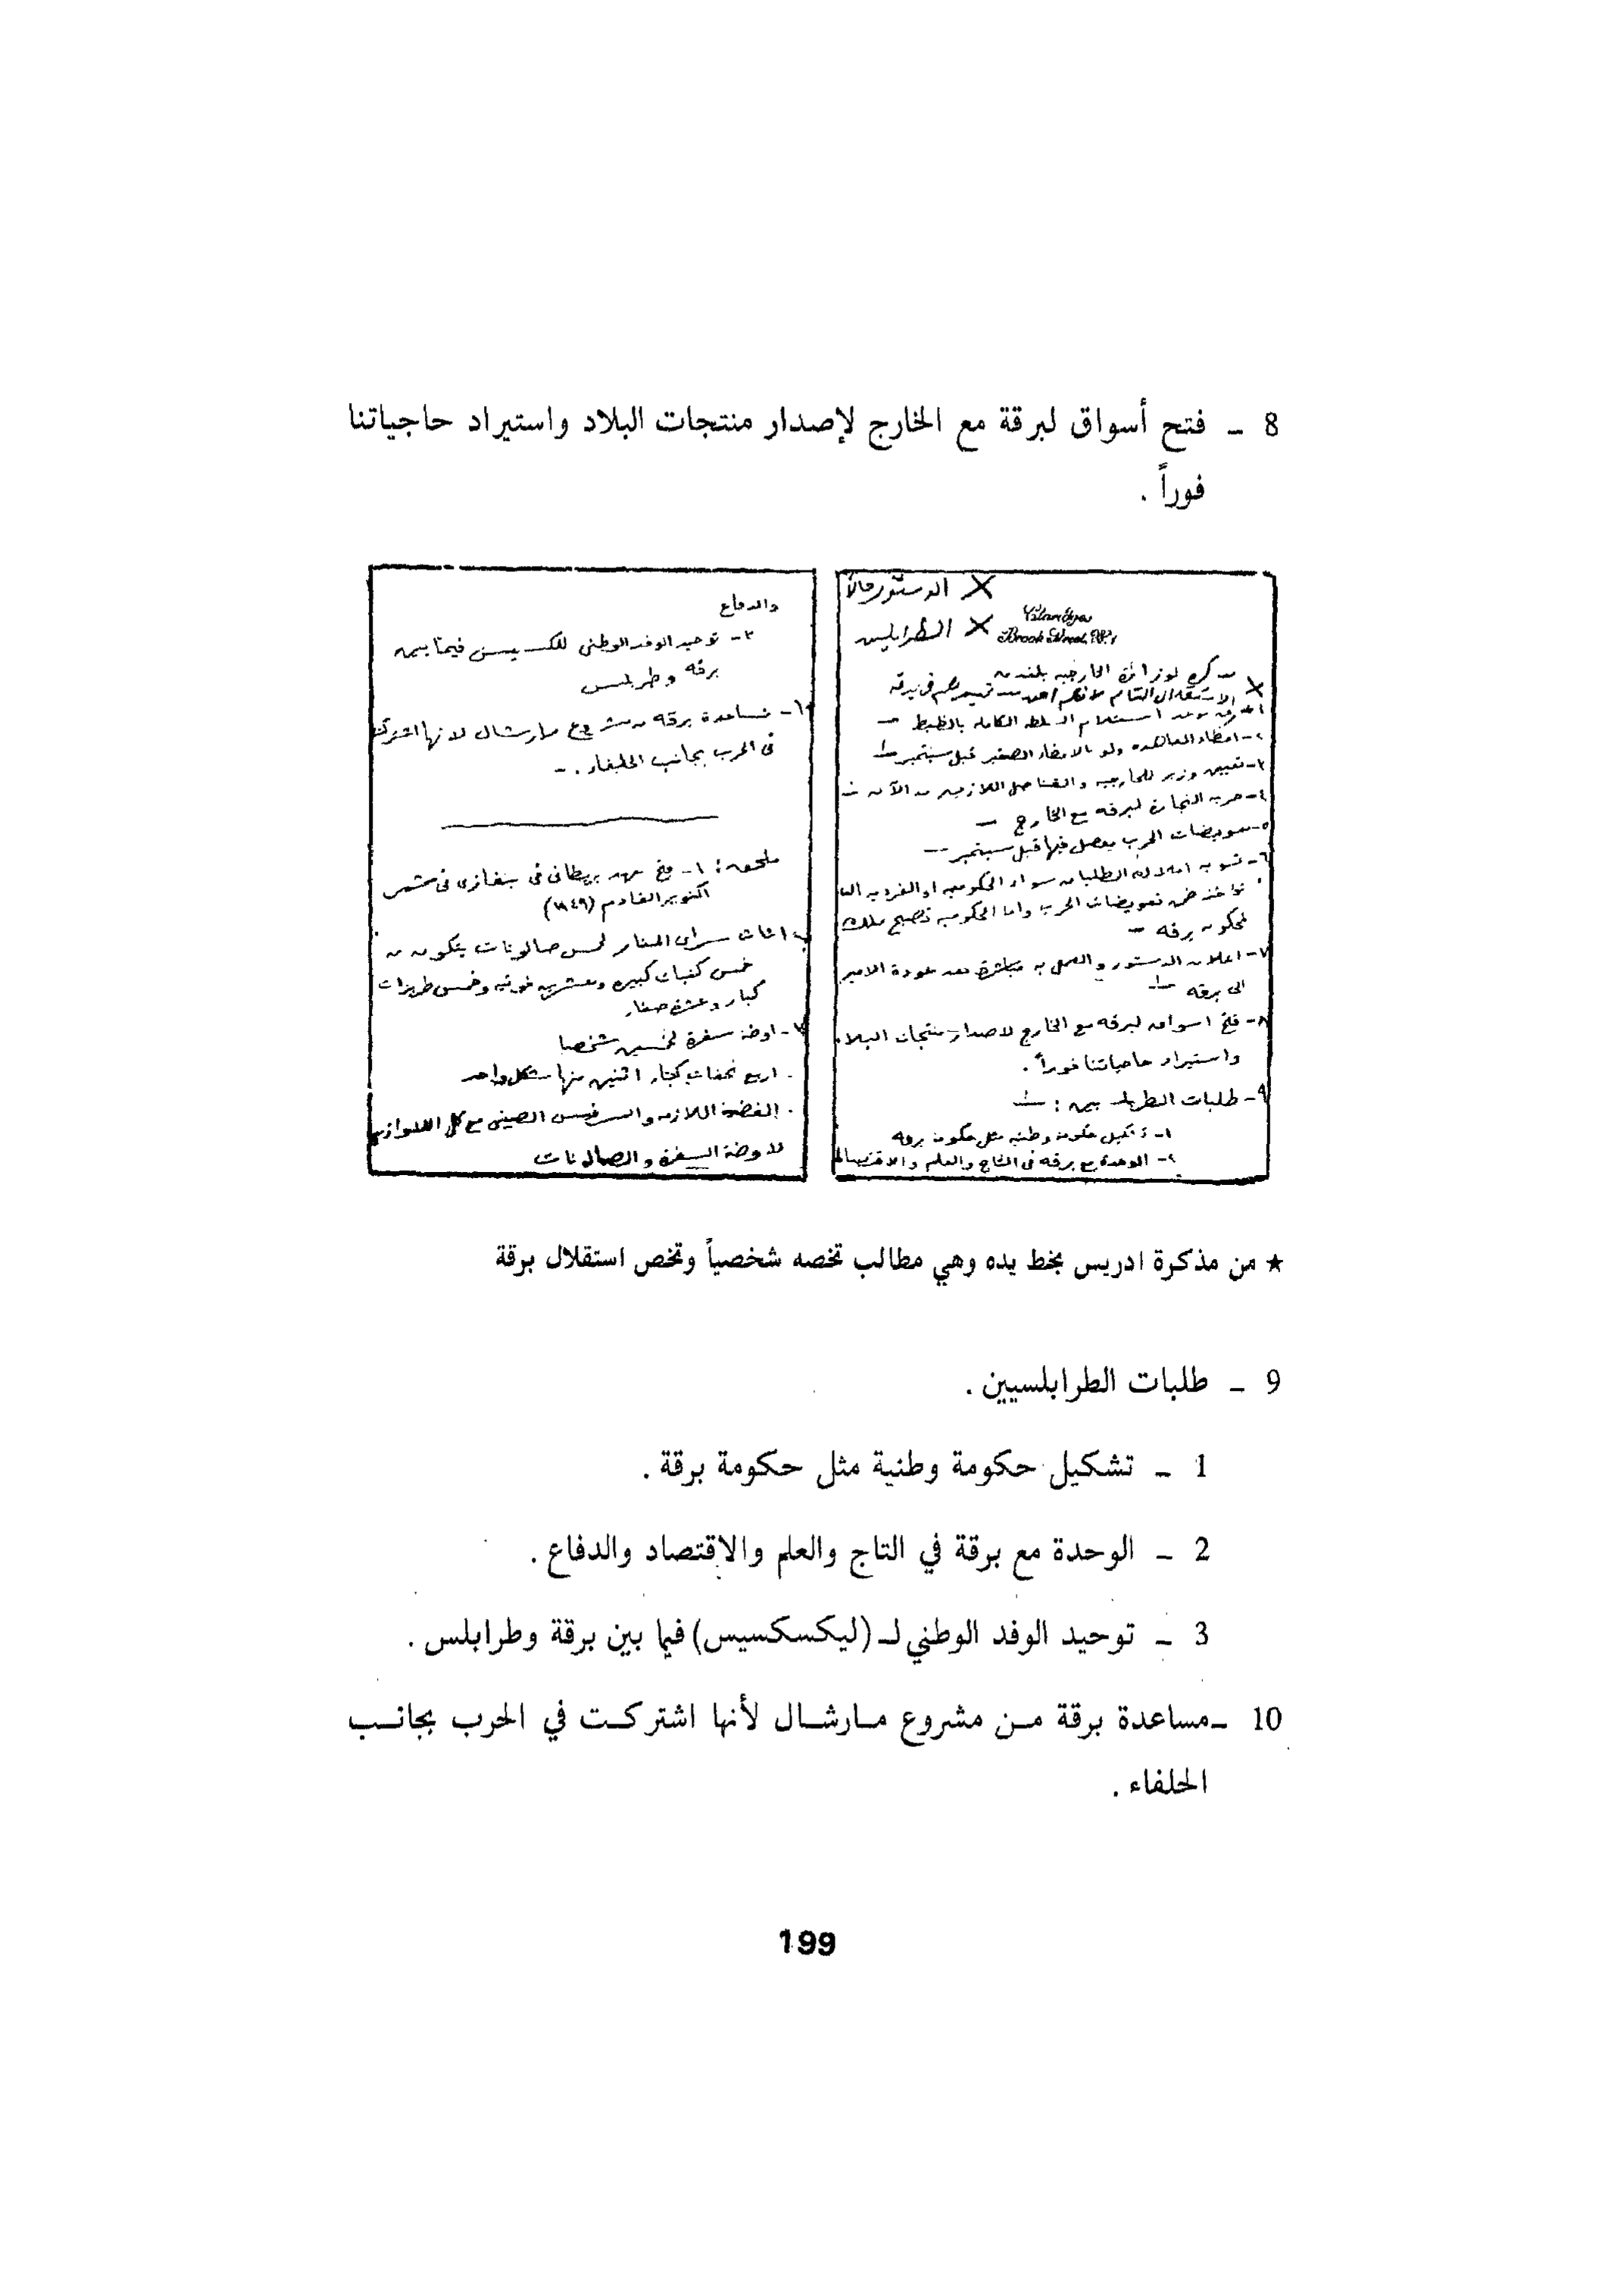 8 ـ فتح أسواق لبرقة مع الخارج لإصدار منتجات البلاد واستيراد حاجياتنا
فوراً .
× الدستور حالاً
× الطرابلسيين
Claridges
Brook Street. W.1
مذكرة لوزارة الخارجية بلندن
الاستقلال التام
استلام السلطة الكاملة بالظبط —
٢- امضاء المعاهده ولو بالامضاء الصغير قبل سبتمبر
٣- تعيين وزير للخارجيه والقناصل اللازمين من الآن
٤- حرية التجارة لبرقه مع الخارج —
٥- تعويضات الحرب يفصل فيها قبل سبتمبر —
٦- تسوية املاك الطليان سواء الحكوميه او الفرديه
تؤاخذ ضمن تعويضات الحرب واما الحكوميه تصبح ملك
لحكومة برقه —
٧- اعلان الدستور والعمل به مباشرة بعد عودة الامير
الى برقه
٨- فتح اسواق لبرقه مع الخارج لاصدار منتجات البلاد
واستيراد حاجياتنا فوراً .
٩- طلبات الطرابلسيين :
١- تشكيل حكومة وطنيه مثل حكومة برقه
٢- الوحدة مع برقه فى التاج والعلم والاقتصاد
والدفاع
٣- توحيد الوفد الوطنى للكسكسيس فيما بين
برقه وطرابلس
١٠- مساعدة برقه من مشروع مارشال لانها اشتركت
فى الحرب بجانب الحلفاء . -
ملحق : ١- فتح معهد بريطانى فى بنغازى فى شهر
اكتوبر القادم (١٩٤٩)
اثاث سراى المنار لخمس صالونات يتكون من
خمس كنبات كبيره وعشرين فوتيه وخمس طربيزات
كبار وعشرة صغار
٣- اوضة سفرة لخمسين شخصا
. اربع نجفات كبار اثنين منها بشكل واحد
. الفضة اللازمه والسرفيس الصينى مع كل اللوازم
لاوضة السفرة والصالونات
★ من مذكرة ادريس بخط يده وهي مطالب تخصه شخصياً وتخص استقلال برقة
9 ـ طلبات الطرابلسيين .
1 ـ تشكيل حكومة وطنية مثل حكومة برقة .
2 ـ الوحدة مع برقة في التاج والعلم والاقتصاد والدفاع .
3 ـ توحيد الوفد الوطني لـ (ليكسكسيس) فيما بين برقة وطرابلس .
10 ـ مساعدة برقة من مشروع مارشال لأنها اشتركت في الحرب بجانب
الحلفاء .
199